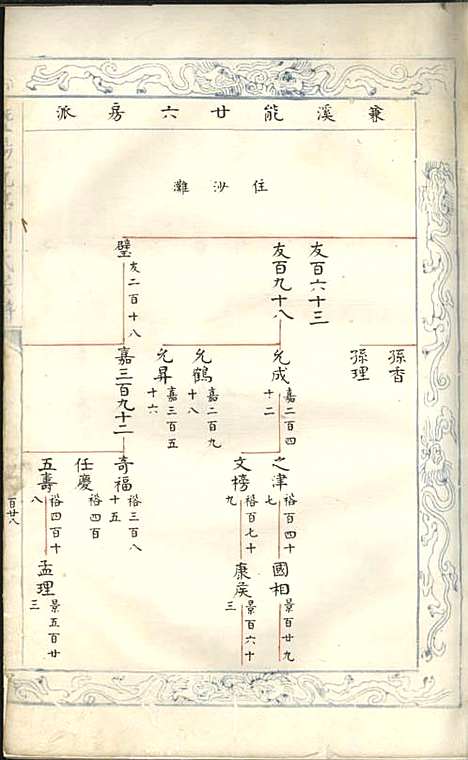 兼溪能廿六房派
住沙灘
孫香
孫理
友百六十三
友百九十八
允成 嘉二百四十二
允鶴 嘉二百九十八
允昇 嘉三百五十六
之津 裕百四十七
國相 景百廿九
文榜 裕百七十九
康侯 景百六十三
璧 友二百十八
嘉三百九十二
奇福 裕三百八十五
任慶 裕四百
五壽 裕四百十八
孟理 景五百廿三
百廿八